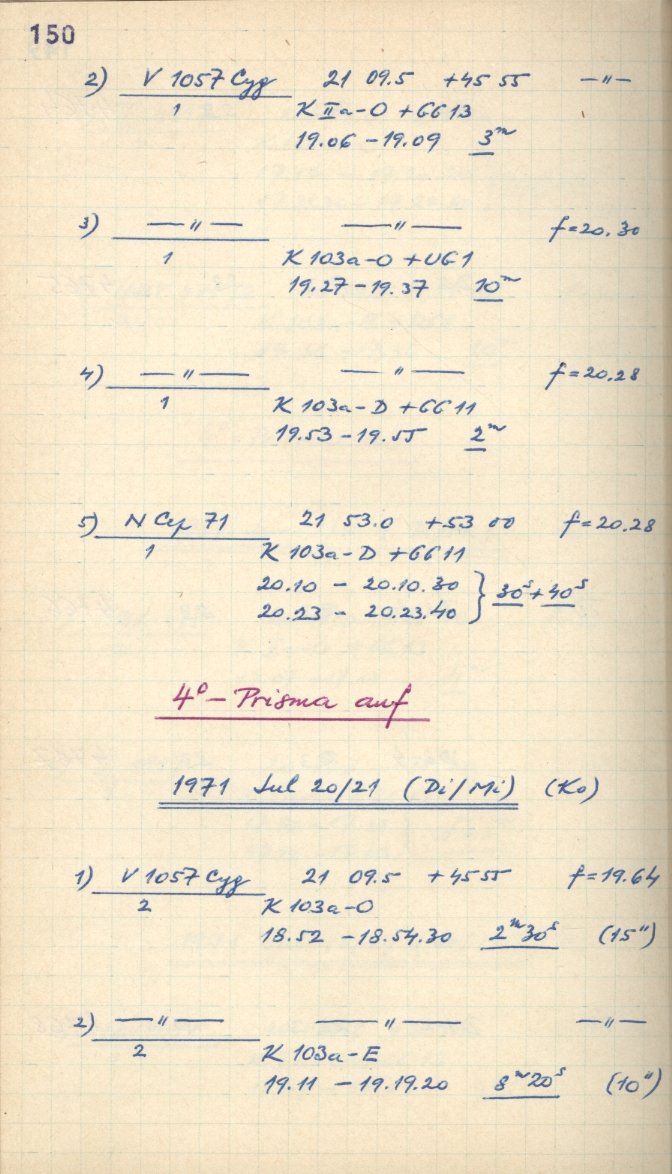 150
2) V 1057 Cyg 21 09.5 +45 55 —"—
1 K IIa-O + GG 13
19.06 – 19.09 3ᵐ
3) —"— —"— f=20.30
1 K 103a-O + UG 1
19.27 – 19.37 10ᵐ
4) —"— —"— f=20.28
1 K 103a-D + GG 11
19.53 – 19.55 2ᵐ
5) N Cep 71 21 53.0 +53 00 f=20.28
1 K 103a-D + GG 11
20.10 – 20.10.30 } 30ˢ + 40ˢ
20.23 – 20.23.40
4° – Prisma auf
1971 Jul 20/21 (Di/Mi) (Ko)
1) V 1057 Cyg 21 09.5 +45 55 f=19.64
2 K 103a-O
18.52 – 18.54.30 2ᵐ30ˢ (15")
2) —"— —"— —"—
2 K 103a-E
19.11 – 19.19.20 8ᵐ20ˢ (10")